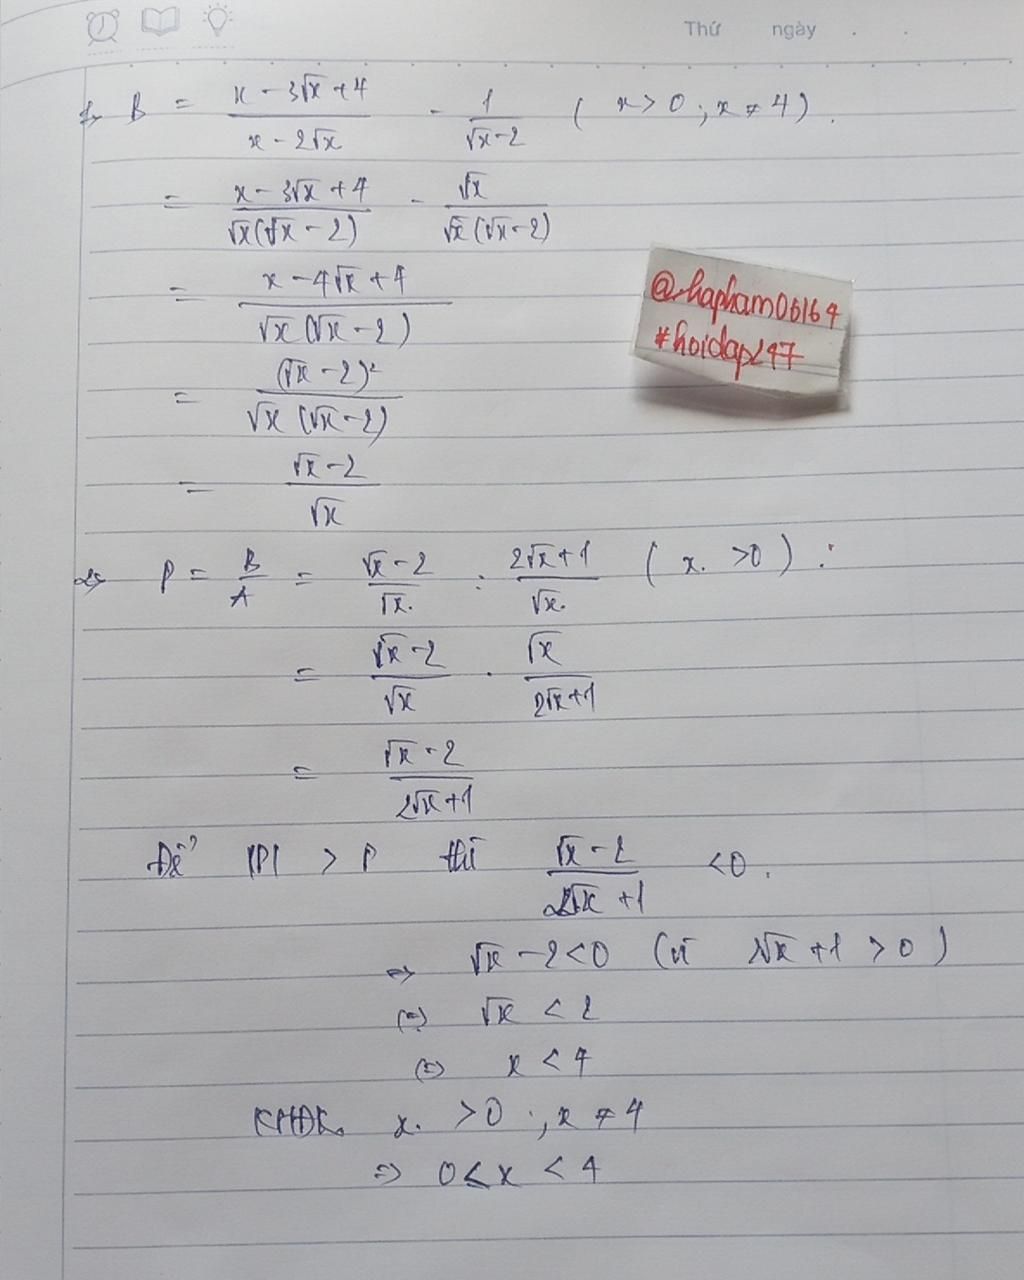 Thứ ngày . .
1, B = \frac{x - 3\sqrt{x} + 4}{x - 2\sqrt{x}} - \frac{1}{\sqrt{x} - 2} ( x > 0 ; x ≠ 4 ) .
= \frac{x - 3\sqrt{x} + 4}{\sqrt{x}(\sqrt{x} - 2)} - \frac{\sqrt{x}}{\sqrt{x}(\sqrt{x} - 2)}
= \frac{x - 4\sqrt{x} + 4}{\sqrt{x}(\sqrt{x} - 2)}
@hapham06164
#hoidap247
= \frac{(\sqrt{x} - 2)^2}{\sqrt{x}(\sqrt{x} - 2)}
= \frac{\sqrt{x} - 2}{\sqrt{x}}
2, P = \frac{B}{A} = \frac{\sqrt{x} - 2}{\sqrt{x}} : \frac{2\sqrt{x} + 1}{\sqrt{x}} ( x > 0 ) :
= \frac{\sqrt{x} - 2}{\sqrt{x}} . \frac{\sqrt{x}}{2\sqrt{x} + 1}
= \frac{\sqrt{x} - 2}{2\sqrt{x} + 1}
Để |P| > P thì \frac{\sqrt{x} - 2}{2\sqrt{x} + 1} < 0 .
=> \sqrt{x} - 2 < 0 (vì 2\sqrt{x} + 1 > 0 )
(=) \sqrt{x} < 2
(=) x < 4
KHĐK x > 0 ; x ≠ 4
=> 0 < x < 4